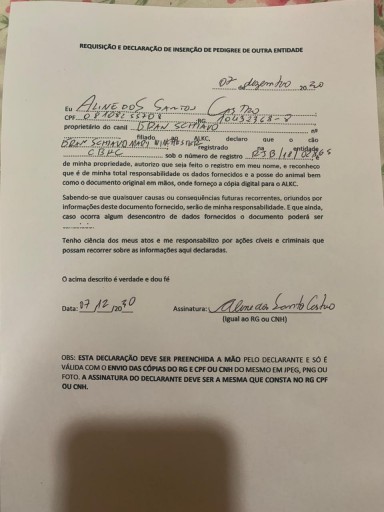 REQUISIÇÃO E DECLARAÇÃO DE INSERÇÃO DE PEDIGREE DE OUTRA ENTIDADE
07 dezembro 2020
Eu ALINE DOS SANTOS CASTRO
CPF RG
proprietário do canil nº
filiado ao ALKC, declaro que o cão
registrado na entidade
CBKC sob o número de registro
de minha propriedade, autorizo que seja feito o registro em meu nome, e reconheço
que é de minha total responsabilidade os dados fornecidos e a posse do animal bem
como o documento original em mãos, onde forneço a cópia digital para o ALKC.
Sabendo-se que quaisquer causas ou consequências futuras recorrentes, oriundos por
informações deste documento fornecido, serão de minha responsabilidade. E que ainda,
caso ocorra algum desencontro de dados fornecidos o documento poderá ser
Tenho ciência dos meus atos e me responsabilizo por ações cíveis e criminais que
possam recorrer sobre as informações aqui declaradas.
O acima descrito é verdade e dou fé
Data: 07/12/2020 Assinatura: Aline dos Santos Castro
(Igual ao RG ou CNH)
OBS: ESTA DECLARAÇÃO DEVE SER PREENCHIDA A MÃO PELO DECLARANTE E SÓ É
VÁLIDA COM O ENVIO DAS CÓPIAS DO RG E CPF OU CNH DO MESMO EM JPEG, PNG OU
FOTO. A ASSINATURA DO DECLARANTE DEVE SER A MESMA QUE CONSTA NO RG CPF
OU CNH.